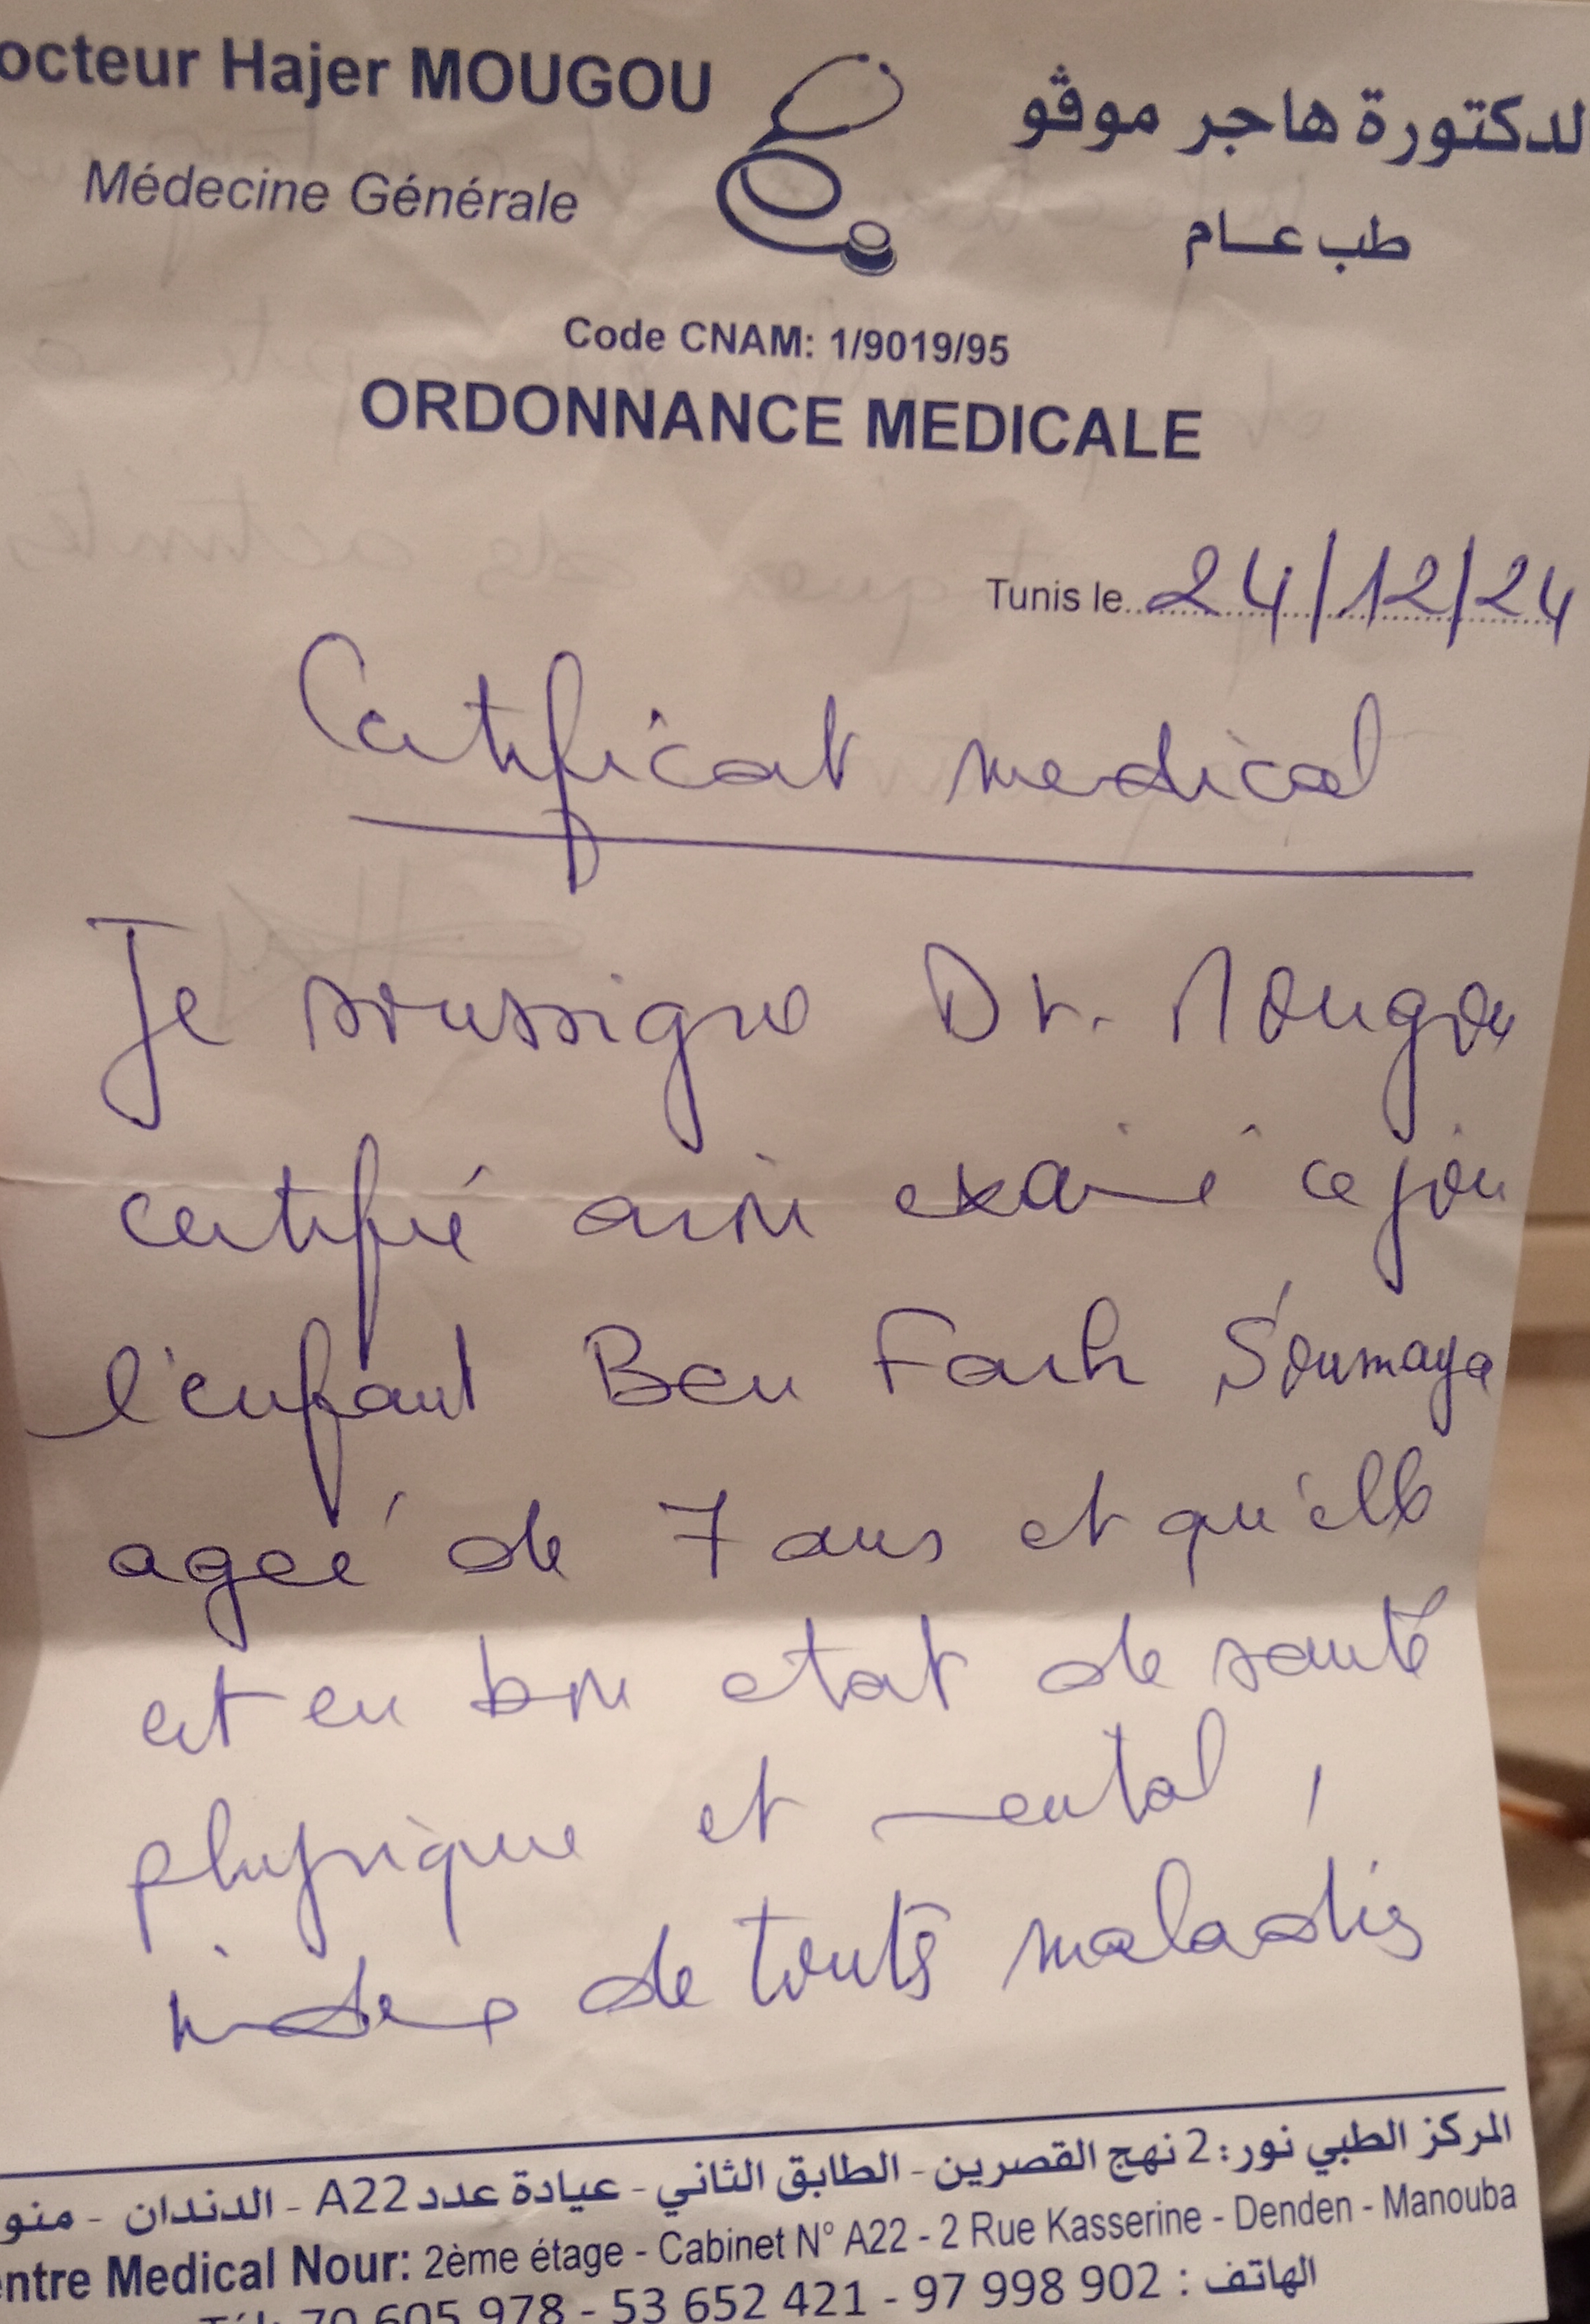 octeur Hajer MOUGOU
Médecine Générale
لدكتورة هاجر موڨو
طب عام
Code CNAM: 1/9019/95
ORDONNANCE MEDICALE
Tunis le 24/12/24
Certificat medical
Je soussigné Dr. Mougou
certifié avoir examiné ce jour
l'enfant Ben Farh Soumaya
ageé de 7 ans et qu'elle
est en bon etat de santé
physique et mental,
indemne de toutes maladies
المركز الطبي نور: 2 نهج القصرين - الطابق الثاني - عيادة عدد A22 - الدندان - منو
entre Medical Nour: 2ème étage - Cabinet N° A22 - 2 Rue Kasserine - Denden - Manouba
الهاتف : 70 605 978 - 53 652 421 - 97 998 902